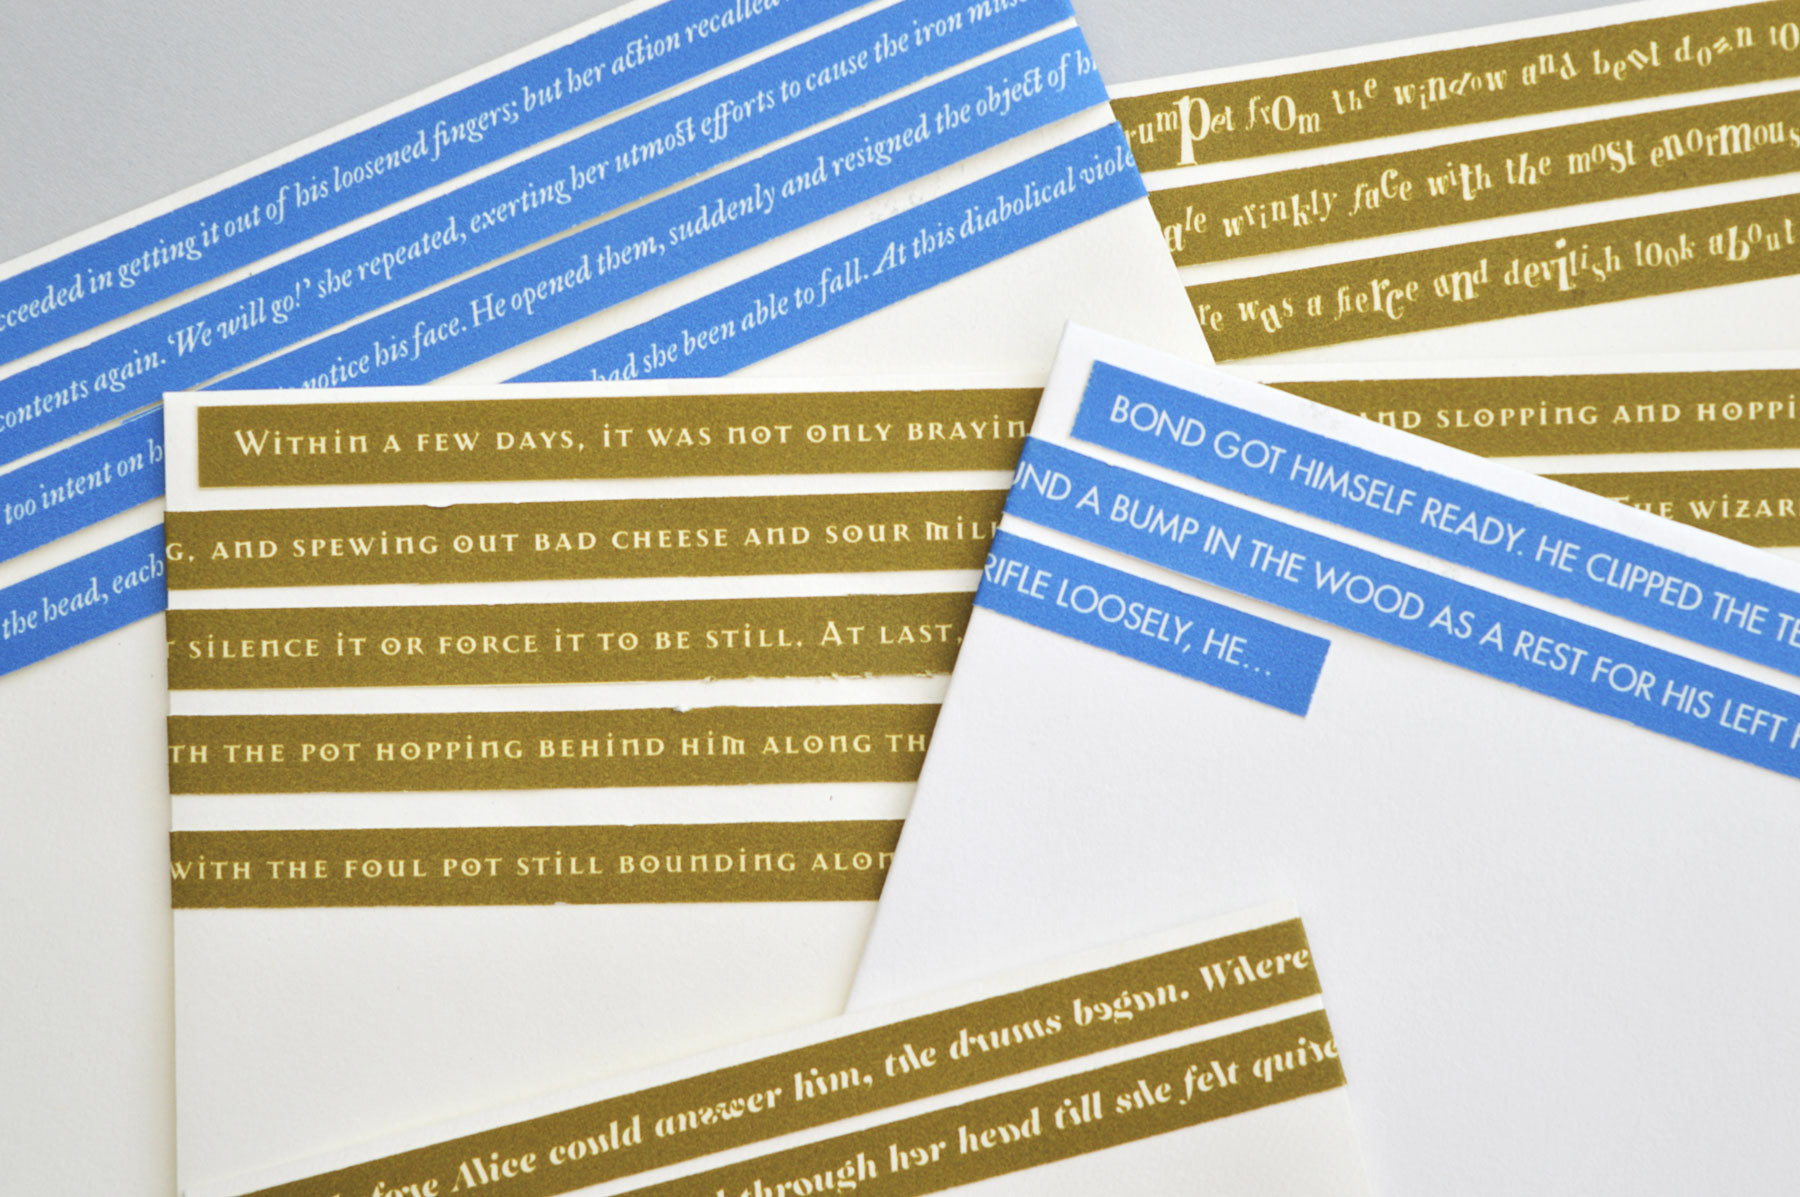 in getting it out of his loosened fingers; but her action recalled
contents again. ‘We will go!’ she repeated, exerting her utmost efforts to cause the iron
too intent on
notice his face. He opened them, suddenly and resigned the object of
the head, each
had she been able to fall. At this diabolical
from the window and bent down to
wrinkly face with the most enormous
was a fierce and devilish look about
Within a few days, it was not only
and spewing out bad cheese and sour
silence it or force it to be still. At last,
the pot hopping behind him along
with the foul pot still bounding
and slopping and
BOND GOT HIMSELF READY. HE CLIPPED THE
A BUMP IN THE WOOD AS A REST FOR HIS LEFT
RIFLE LOOSELY, HE...
Alice could answer him, the drums began. Where
through her head till she felt quite